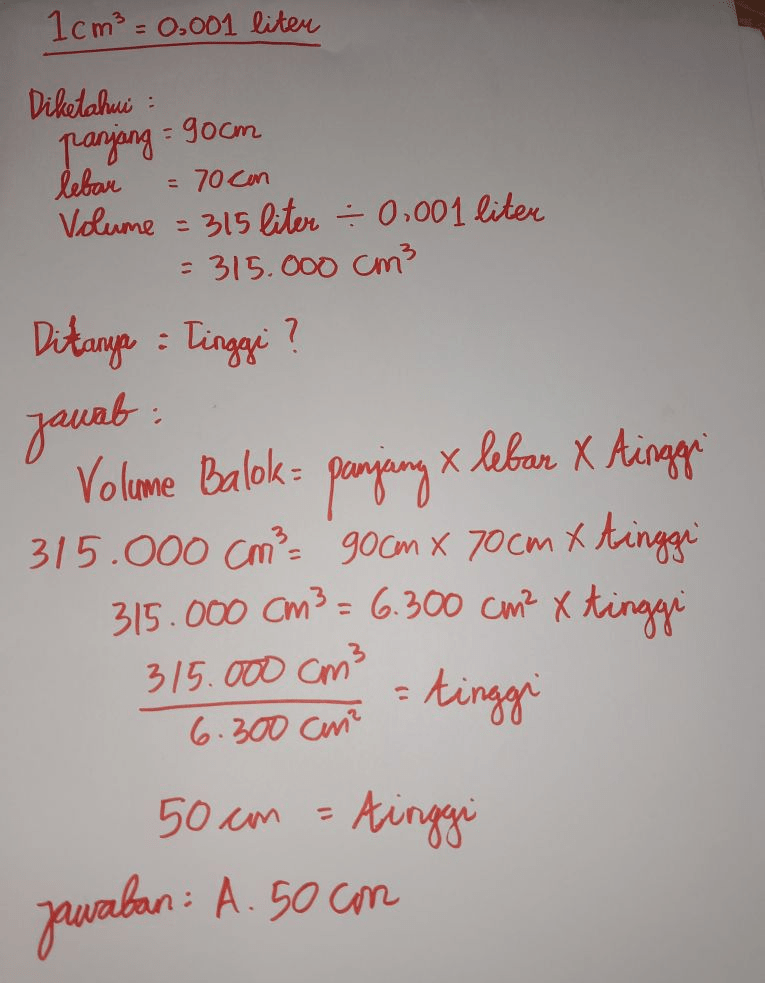 1cm³ = 0,001 liter
Diketahui :
panjang = 90cm
lebar = 70 cm
Volume = 315 liter ÷ 0,001 liter
= 315.000 cm³
Ditanya = Tinggi ?
jawab :
Volume Balok = panjang x lebar x tinggi
315.000 cm³ = 90cm x 70cm x tinggi
315.000 cm³ = 6.300 cm² x tinggi
315.000 cm³
6.300 cm² = tinggi
50 cm = tinggi
jawaban : A. 50 cm